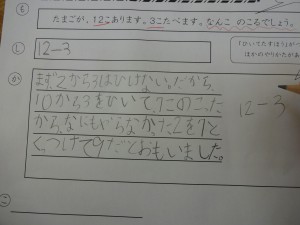 も
たまごが、12こあります。3こたべます。なんこ のこるでしょう。
し
12-3
「ひいてたすほう」が
ほかのやりかたがあ
か
まず2から3はひけない。だから、
10から3をひいて、7このこった
から、なにもいらなかった2を7と
くっつけて9だとおもいました。
12-3
こ